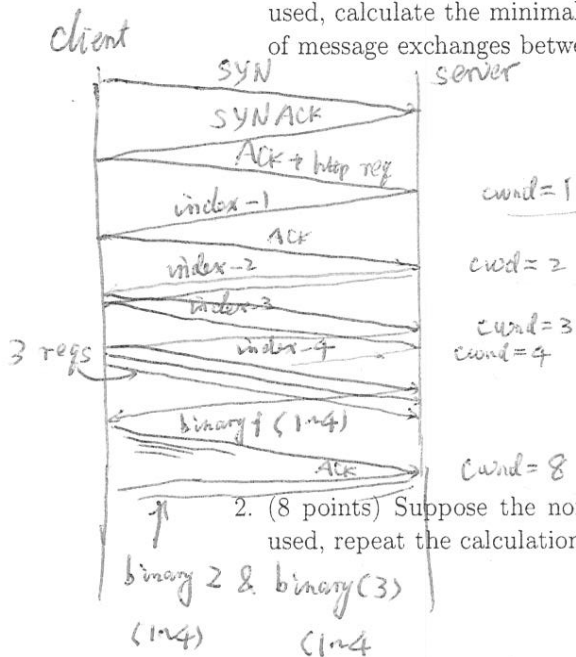 used, calculate the minimal
of message exchanges betwe
client
server
SYN
SYN ACK
ACK + http req
index-1
cwnd = 1
ACK
index-2
cwd = 2
index-3
cwnd = 3
index-4
cwnd = 4
3 reqs
binary 1 (1~4)
ACK
cwnd = 8
2. (8 points) Suppose the no
used, repeat the calculation
binary 2 & binary (3)
(1~4) (1~4